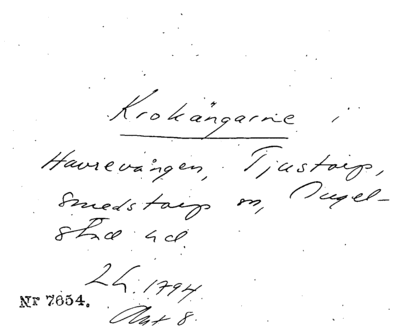 Krokängarne i
Havrevången, Tjustorp,
Smedstorp sn, Ingel-
stad hd.
LH. 1794
Akt 8.
Nr 7654.